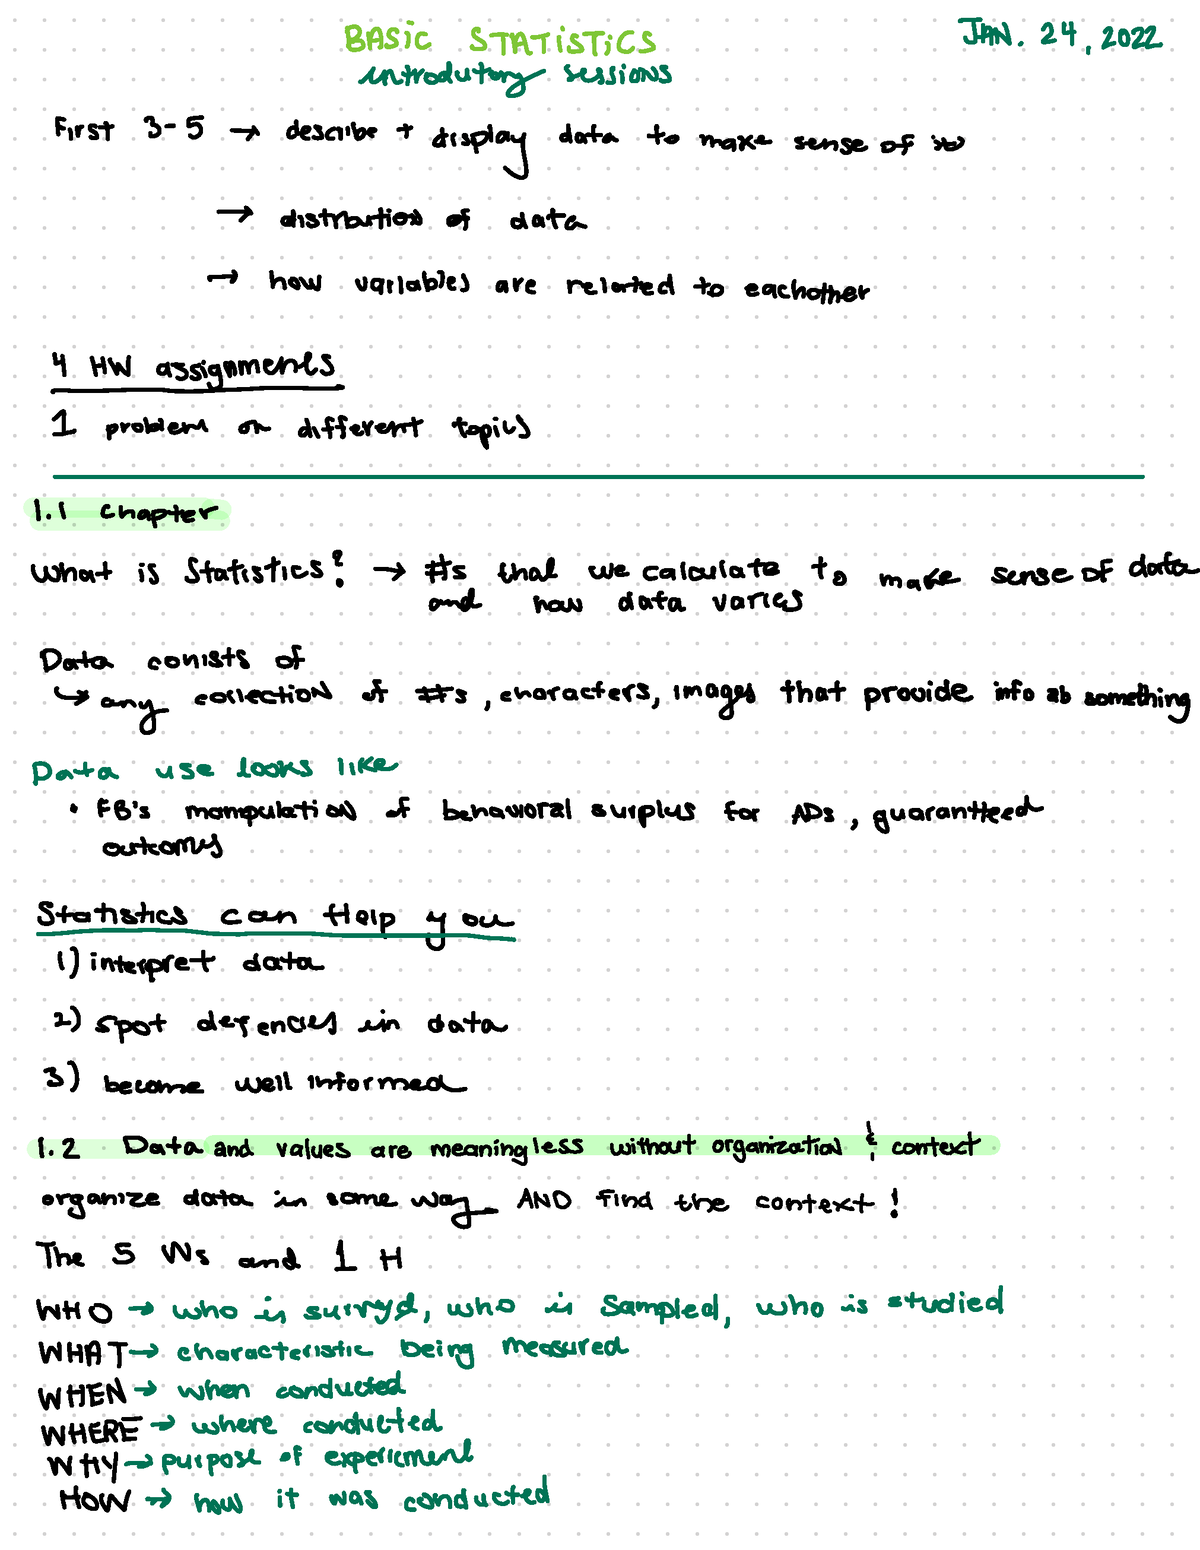 BASIC STATISTICS
JAN. 24, 2022
introdutory sessions
First 3-5 → describe + display data to make sense of it
→ distribution of data
→ how variables are related to eachother
4 HW assignments
1 problem on different topics
1.1 chapter
What is Statistics? → #s that we calculate to make sense of data
and how data varies
Data conists of
↳ any collection of #s, characters, images that provide info ab something
Data use looks like
• FB's manipulation of behavioral surplus for ADs, guarantteed
outcomes
Statistics can Help you
1) interpret data
2) spot in data
3) become well informed
1.2 Data and values are meaningless without organization & context
organize data in some way AND find the context!
The 5 Ws and 1 H
WHO → who is survyd, who is sampled, who is studied
WHAT → characteristic being measured
WHEN → when conducted
WHERE → where conducted
WHY → purpose of experiement
HOW → how it was conducted